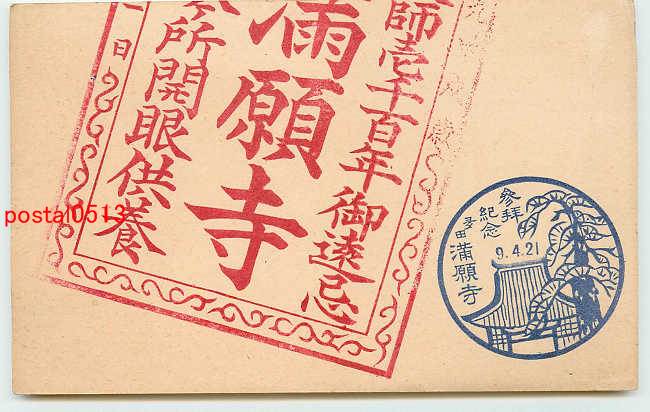 師壱千百年御遠忌
満願寺
所開眼供養
一日
参拝
紀念
多田
満願寺
9.4.21
postal0513